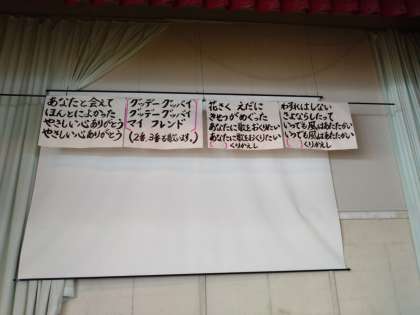 あなたと会えて
ほんとによかった
やさしい心ありがとう
やさしい心ありがとう
グッデーグッバイ
グッデーグッバイ
マイ フレンド
(2番、3番も歌います。)
花さく えだに
きせつがめぐった
あなたに歌をおくりたい
あなたに歌をおくりたい
くりかえし
わすれはしない
さよならしたって
いつでも風はあたたかい
いつでも風はあたたかい
くりかえし